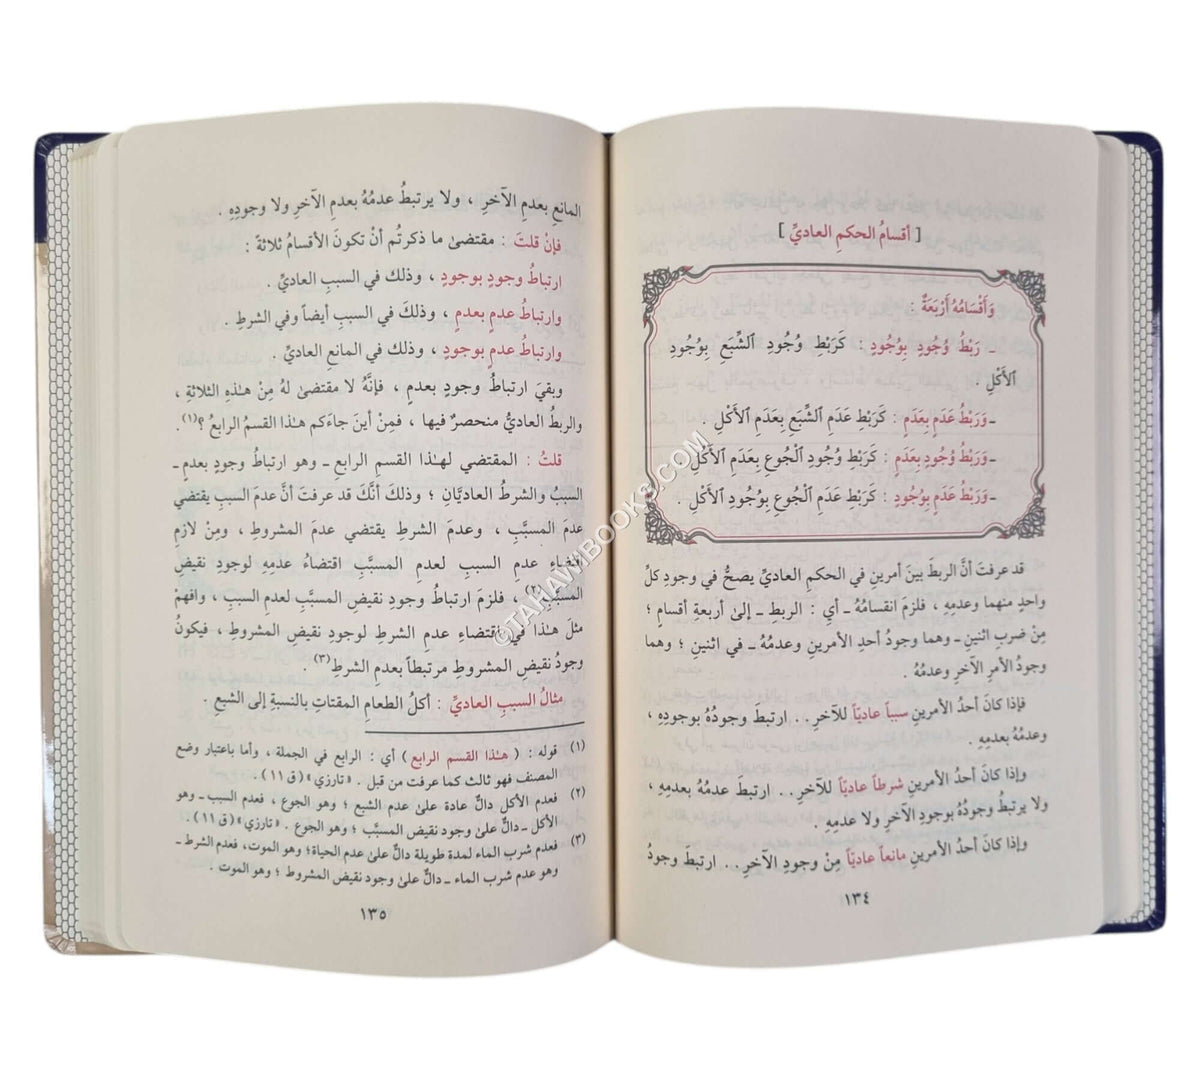 [ أقسامُ الحكمِ العاديِّ ]
وَأَقْسَامُهُ أَرْبَعَةٌ :
ـ رَبْطُ وُجُودٍ بِوُجُودٍ : كَرَبْطِ وُجُودِ ٱلشِّبَعِ بِوُجُودِ
ٱلأَكْلِ .
ـ وَرَبْطُ عَدَمٍ بِعَدَمٍ : كَرَبْطِ عَدَمِ ٱلشِّبَعِ بِعَدَمِ ٱلأَكْلِ .
ـ وَرَبْطُ وُجُودٍ بِعَدَمٍ : كَرَبْطِ وُجُودِ ٱلْجُوعِ بِعَدَمِ ٱلأَكْلِ .
ـ وَرَبْطُ عَدَمٍ بِوُجُودٍ : كَرَبْطِ عَدَمِ ٱلْجُوعِ بِوُجُودِ ٱلأَكْلِ .
قد عرفتَ أنَّ الربطَ بينَ أمرينِ في الحكمِ العاديِّ يصحُّ في وجودِ كلِّ
واحدٍ منهما وعدمِهِ ، فلزمَ انقسامُهُ ـ أيِ : الربطِ ـ إلىٰ أربعةِ أقسامٍ ؛
مِنْ ضربِ اثنينِ ـ وهما وجودُ أحدِ الأمرينِ وعدمُهُ ـ في اثنينِ ؛ وهما
وجودُ الأمرِ الآخرِ وعدمُهُ .
فإذا كانَ أحدُ الأمرينِ سبباً عاديّاً للآخرِ . . ارتبطَ وجودُهُ بوجودِهِ ،
وعدمُهُ بعدمِهِ .
وإذا كانَ أحدُ الأمرينِ شرطاً عاديّاً للآخرِ . . ارتبطَ عدمُهُ بعدمِهِ ،
ولا يرتبطُ وجودُهُ بوجودِ الآخرِ ولا عدمِهِ .
وإذا كانَ أحدُ الأمرينِ مانعاً عاديّاً مِنْ وجودِ الآخرِ . . ارتبطَ وجودُ
١٣٤
المانعِ بعدمِ الآخرِ ، ولا يرتبطُ عدمُهُ بعدمِ الآخرِ ولا وجودِهِ .
فإنْ قلتَ : مقتضىٰ ما ذكرتُم أنْ تكونَ الأقسامُ ثلاثةً :
ارتباطُ وجودٍ بوجودٍ ، وذلك في السببِ العاديِّ .
وارتباطُ عدمٍ بعدمٍ ، وذلكَ في السببِ أيضاً وفي الشرطِ .
وارتباطُ عدمٍ بوجودٍ ، وذلكَ في المانعِ العاديِّ .
وبقيَ ارتباطُ وجودٍ بعدمٍ ، فإنَّهُ لا مقتضىٰ لهُ مِنْ هـٰذهِ الثلاثةِ ،
والربطُ العاديُّ منحصرٌ فيها ، فمِنْ أينَ جاءَكم هـٰذا القسمُ الرابعُ ؟(١) .
قلتُ : المقتضي لهـٰذا القسمِ الرابعِ ـ وهو ارتباطُ وجودٍ بعدمٍ ـ
السببُ والشرطُ العاديَّانِ ؛ وذلكَ أنَّكَ قد عرفتَ أنَّ عدمَ السببِ يقتضي
عدمَ المسبَّبِ ، وعدمَ الشرطِ يقتضي عدمَ المشروطِ ، ومِنْ لازمِ
اقتضاءِ عدمِ السببِ لعدمِ المسبَّبِ اقتضاءُ عدمِهِ لوجودِ نقيضِ
المسبَّبِ ، فلزمَ ارتباطُ وجودِ نقيضِ المسبَّبِ لعدمِ السببِ ، وافهمْ
مثلَ هـٰذا في اقتضاءِ عدمِ الشرطِ لوجودِ نقيضِ المشروطِ ، فيكونُ
وجودُ نقيضِ المشروطِ مرتبطاً بعدمِ الشرطِ(٣) .
مثالُ السببِ العاديِّ : أكلُ الطعامِ المقتاتِ بالنسبةِ إلى الشبعِ .
(١) قوله : ( هـٰذا القسم الرابع ) أي : الرابع في الجملة ، وأما باعتبار وضع
المصنف فهو ثالث كما عرفت من قبل . « تارزي » ( ق ١١ ) .
(٢) فعدم الأكل دالٌّ عادة علىٰ عدم الشبع ؛ وهو الجوع ، فعدم السبب ـ وهو
الأكل ـ دالٌّ علىٰ وجود نقيض المسبَّب ؛ وهو الجوع . « تارزي » ( ق ١١ ) .
(٣) فعدم شرب الماء لمدة طويلة دالٌّ علىٰ عدم الحياة ؛ وهو الموت ، فعدم الشرط ـ
وهو عدم شرب الماء ـ دالٌّ علىٰ وجود نقيض المشروط ؛ وهو الموت .
١٣٥
©QTAHAWIBOOKS.COM